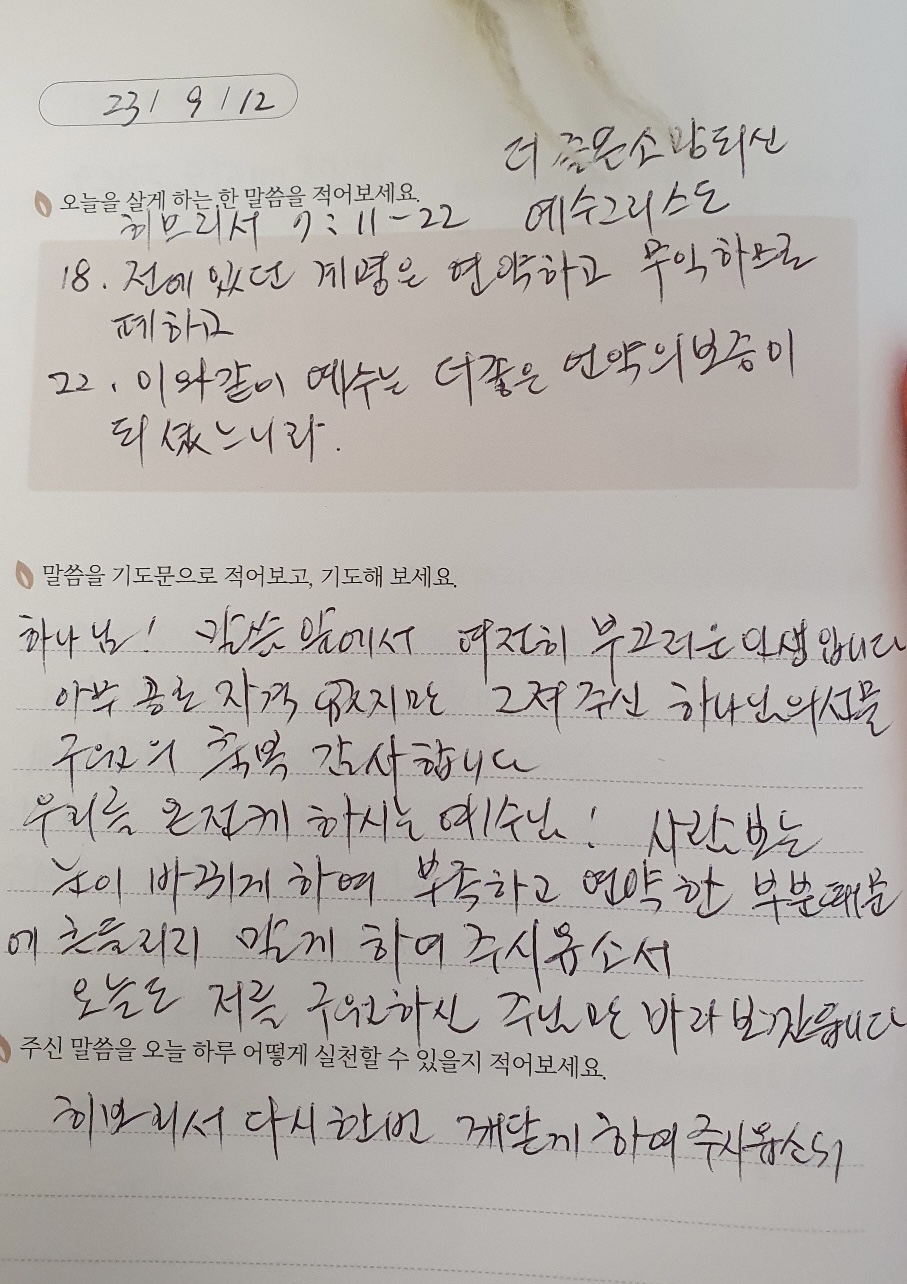 23 / 9 / 12
더 좋은 소망되신
오늘을 살게 하는 한 말씀을 적어보세요.
히브리서 7:11-22 예수그리스도
18. 전에 있던 계명은 연약하고 무익하므로
폐하고
22. 이와같이 예수는 더좋은 언약의 보증이
되셨느니라.
말씀을 기도문으로 적어보고, 기도해 보세요.
하나님! 말씀 앞에서 여전히 부끄러운 인생입니다
아무 공로 자격 없지만 그저 주신 하나님의 선물
구원의 축복 감사합니다
우리를 온전케 하시는 예수님! 사람보는
눈이 바뀌게 하여 부족하고 연약한 부분때문
에 흔들리지 않게 하여 주시옵소서
오늘도 저를 구원하신 주님만 바라보길원합니다
주신 말씀을 오늘 하루 어떻게 실천할 수 있을지 적어보세요.
히브리서 다시한번 깨닫게 하여주시옵소서